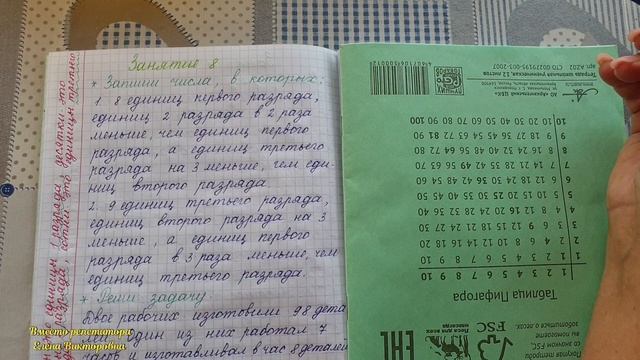 Занятие 8
* Запиши числа, в которых:
1. 8 единиц первого разряда,
единиц 2 разряда в 2 раза
меньше, чем единиц первого
разряда, а единиц третьего
разряда на 3 меньше, чем еди-
ниц второго разряда.
2. 9 единиц третьего разряда,
единиц второго разряда на 3
меньше, а единиц первого
разряда в 3 раза меньше, чем
единиц третьего разряда.
* Реши задачу.
Двое рабочих изготовили 98 дета
один из них работал 7
часов и изготавливал в час 8 деталей
единицы 1 разряда десятки это
это единицы третьего
Вместо репетитора
Елена Викторовна
Таблица Пифагора
1 2 3 4 5 6 7 8 9 10
1 1 2 3 4 5 6 7 8 9 10
2 2 4 6 8 10 12 14 16 18 20
3 3 6 9 12 15 18 21 24 27 30
4 4 8 12 16 20 24 28 32 36 40
5 5 10 15 20 25 30 35 40 45 50
6 6 12 18 24 30 36 42 48 54 60
7 7 14 21 28 35 42 49 56 63 70
8 8 16 24 32 40 48 56 64 72 80
9 9 18 27 36 45 54 63 72 81 90
10 10 20 30 40 50 60 70 80 90 100
Тетрадь школьная ученическая, 12 листов
арт. А202 СТО 00279195-001-2007
АО «Архангельский ЦБК»
FSC
Покупая
вы помогаете
заботиться о лесах.
Леса для всех
навсегда
EAC